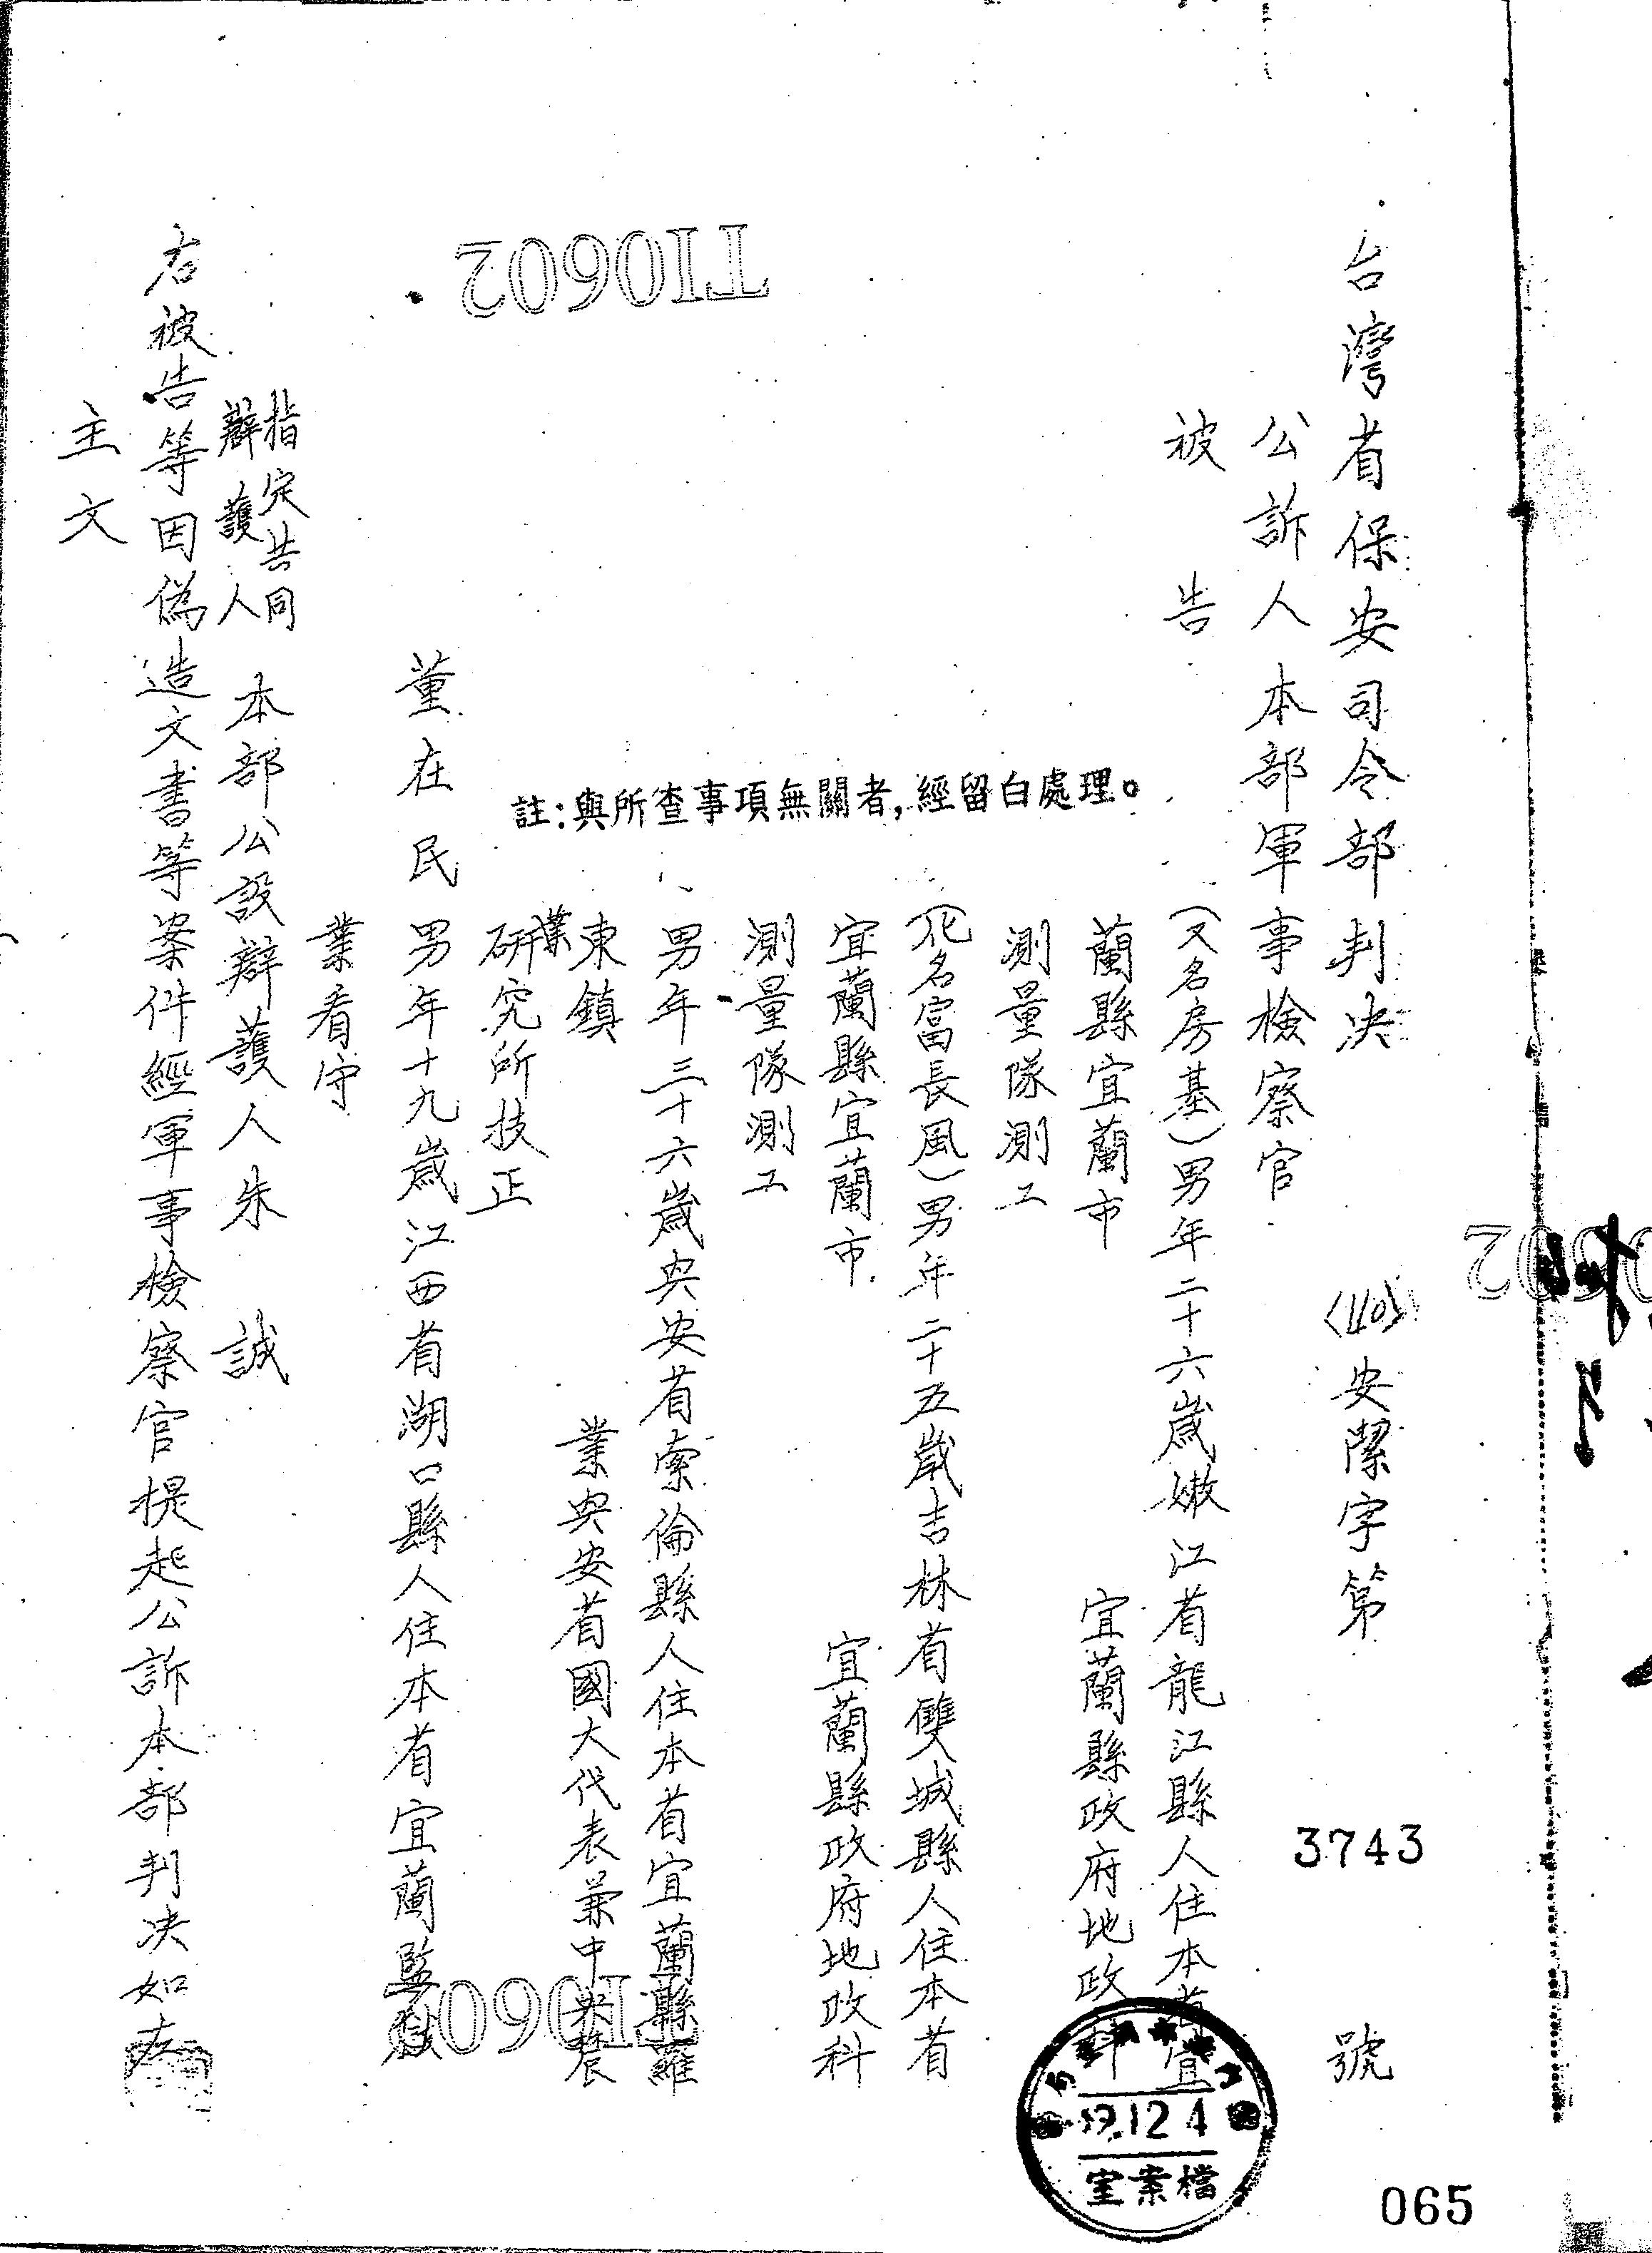 台灣省保安司令部判決 (40)安潔字第 3743 號
公訴人 本部軍事檢察官
被告 (又名房基)男年二十六歲嫩江省龍江縣人住本省宜
蘭縣宜蘭市 宜蘭縣政府地政科
測量隊測工
(化名富長風)男年二十五歲吉林省雙城縣人住本省
宜蘭縣宜蘭市 宜蘭縣政府地政科
測量隊測工
男年三十六歲興安省索倫縣人住本省宜蘭縣羅
東鎮 業興安省國大代表兼中央農
業
研究所技正
董在民 男年十九歲江西省湖口縣人住本省宜蘭監獄
業看守
指定共同
辯護人 本部公設辯護人朱 誠
右被告等因偽造文書等案件經軍事檢察官提起公訴本部判決如左
主文
註:與所查事項無關者,經留白處理。
TI0602
TI0602
0602
12.4
檔案室
065